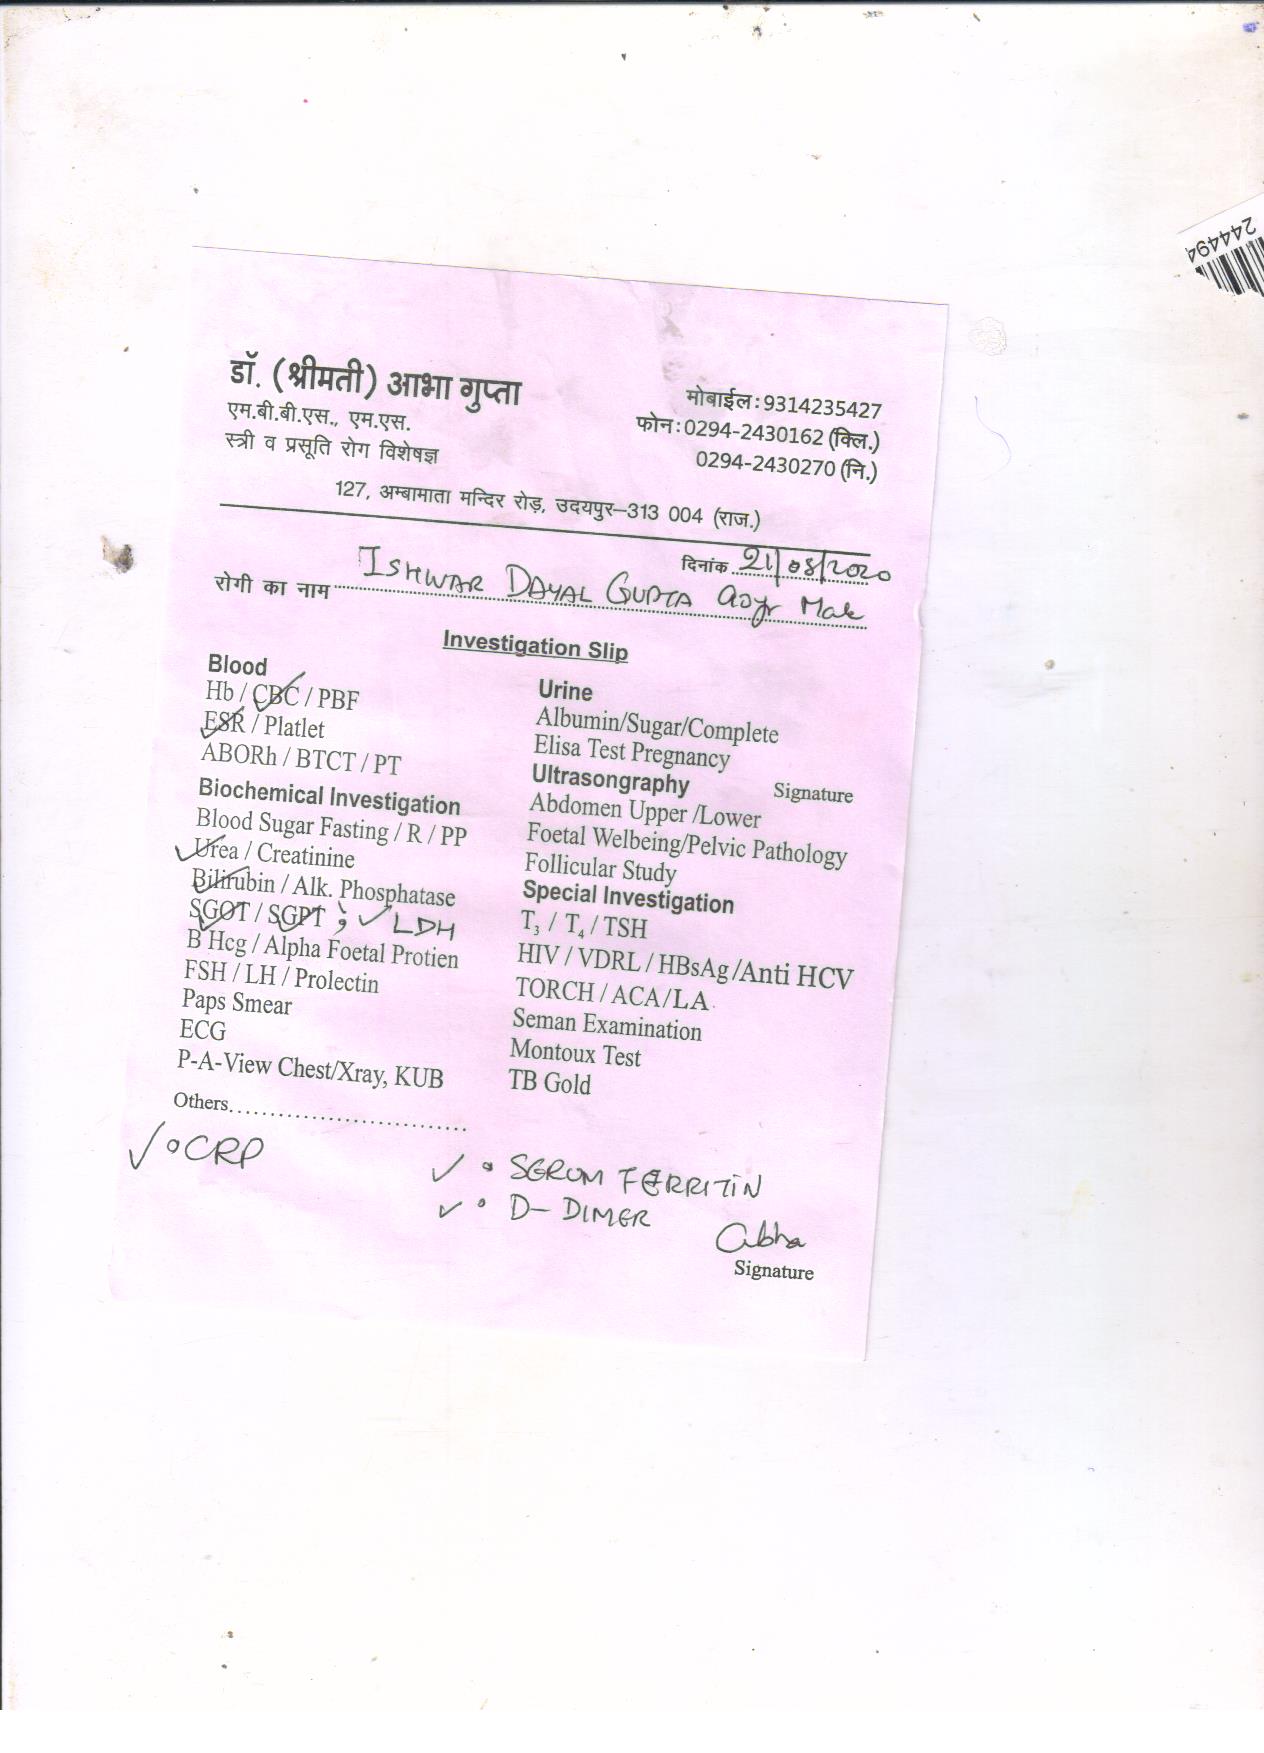 244494
डॉ. (श्रीमती) आभा गुप्ता
एम.बी.बी.एस., एम.एस.
स्त्री व प्रसूति रोग विशेषज्ञ
मोबाईल:9314235427
फोन:0294-2430162 (क्लि.)
0294-2430270 (नि.)
127, अम्बामाता मन्दिर रोड़, उदयपुर–313 004 (राज.)
दिनांक 21/08/2020
रोगी का नाम ISHWAR DAYAL GUPTA Male
Investigation Slip
Blood
Hb / CBC / PBF
ESR / Platlet
ABORh / BTCT / PT
Biochemical Investigation
Blood Sugar Fasting / R / PP
Urea / Creatinine
Bilirubin / Alk. Phosphatase
SGOT / SGPT ; ✓ LDH
B Hcg / Alpha Foetal Protien
FSH / LH / Prolectin
Paps Smear
ECG
P-A-View Chest/Xray, KUB
Others..............................
✓ • CRP
Urine
Albumin/Sugar/Complete
Elisa Test Pregnancy
Ultrasongraphy
Signature
Abdomen Upper /Lower
Foetal Welbeing/Pelvic Pathology
Follicular Study
Special Investigation
T₃ / T₄ / TSH
HIV / VDRL / HBsAg /Anti HCV
TORCH / ACA/LA
Seman Examination
Montoux Test
TB Gold
✓ • SERUM FERRITIN
✓ • D- DIMER
Abha
Signature